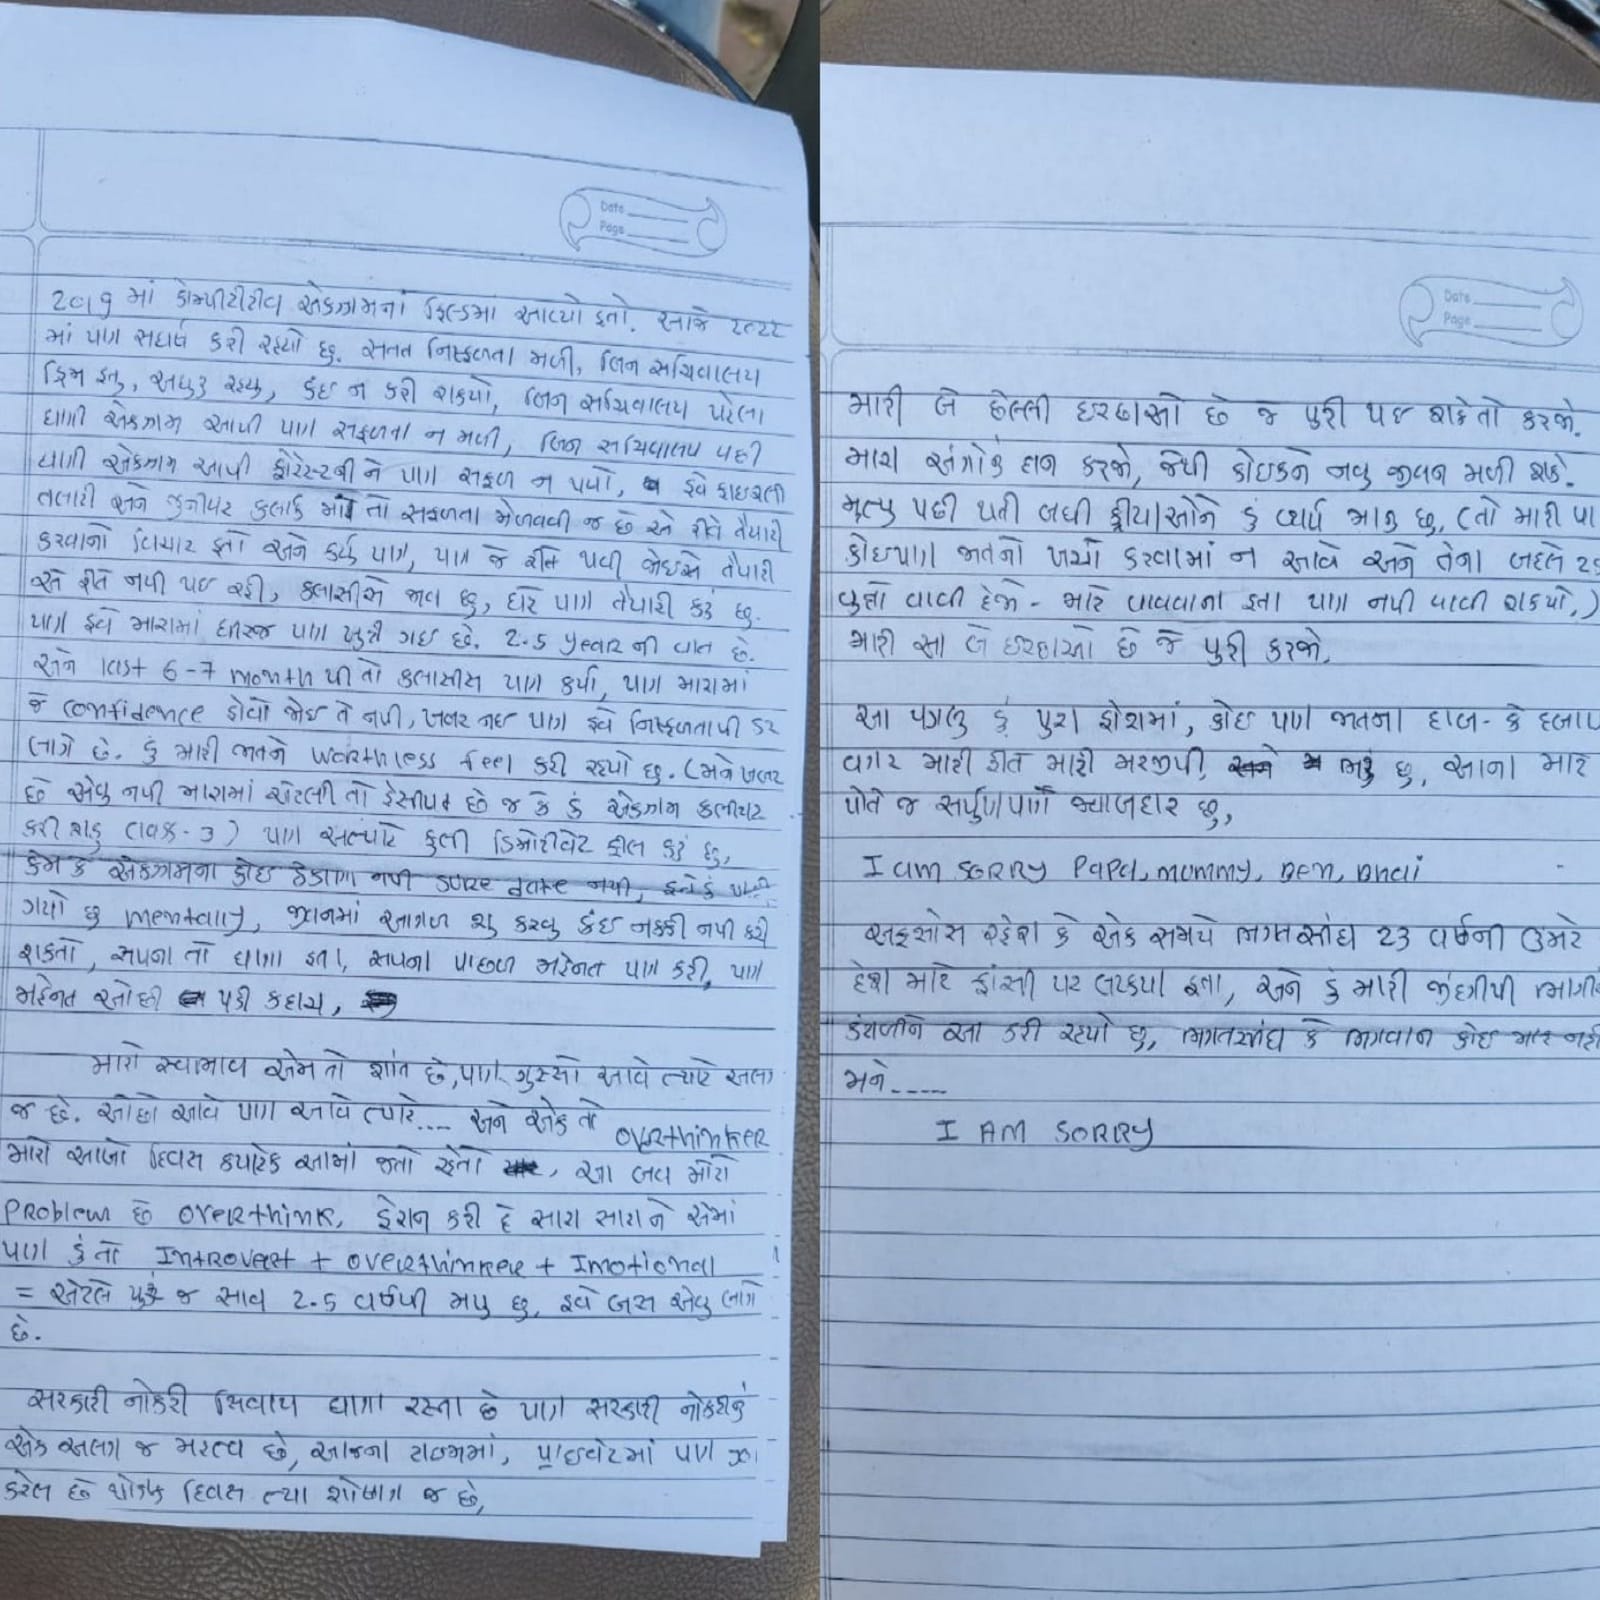 Date
Page
2019 માં કોમ્પીટીટીવ એકઝામનાં ફિલ્ડમાં આવ્યો હતો. આજે 2022
માં પણ સઘર્ષ કરી રહ્યો છુ. સતત નિષ્ફળતા મળી, બિન સચિવાલય
ડ્રિમ હતુ, અધુરૂ રહ્યુ, કંઇ ન કરી શક્યો, બિન સચિવાલય પહેલા
ઘણી એકઝામ આપી પણ સફળતા ન મળી, બિન સચિવાલય પછી
ઘણી એકઝામ આપી ફોરેસ્ટની ને પણ સફળ ન થયો, હવે ફાઇનલી
તલાટી અને જુનીયર કલાર્ક માં તો સફળતા મેળવવી જ છે એ રીતે તૈયારી
કરવાનો વિચાર હતો અને કર્યુ પણ, પણ જે રીતે થવી જોઇએ તૈયારી
એ રીતે નથી થઇ રહી, કલાસીસે જાવ છુ, ઘરે પણ તૈયારી કરૂ છુ.
પણ હવે મારામાં ધીરજ પણ ખુટી ગઇ છે. 2.5 year ની વાત છે.
અને last 6-7 month થી તો કલાસીસ પણ કર્યા, પણ મારામાં
જે confidence હોવો જોઇ તે નથી, ખબર નઇ પણ હવે નિષ્ફળતાથી ડર
લાગે છે. હું મારી જાતને worthless feel કરી રહ્યો છુ. (મને ખબર
છે એવુ નથી મારામાં એટલી તો કેસીપટ છે જ કે હું એકઝામ કલીયર
કરી શકુ (વર્ગ-3) પણ અત્યારે ફુલી ડિમોટીવેટ ફીલ કરૂ છુ,
કેમ કે એકઝામના કોઇ ઠેકાણા નથી sure date નથી, હવે હું થાકી
ગયો છુ mentally, જીવનમાં આગળ શુ કરવુ કંઇ નક્કી નથી કરી
શકતો, સપના તો ઘણા હતા, સપના પાછળ મહેનત પણ કરી, પણ
મહેનત ઓછી પડી કદાચ,
મારો સ્વાભાવ એમ તો શાંત છે, પણ ગુસ્સો આવે ત્યારે અલગ
જ છે. ઓછો આવે પણ આવે ત્યારે.... અને એક તો overthinker
મારો આખો દિવસ કયારેક આમાં જતો રહેતો, આ બવ મોટો
Problem છે overthink, હેરાન કરી દે સારા સારા ને એમાં
પણ હું તો Introvert + overthinker + Imotional
= એટલે પુરૂ જ સાવ 2.5 વર્ષથી મથુ છુ, હવે બસ એવુ લાગે
છે.
સરકારી નોકરી સિવાય ઘણા રસ્તા છે પણ સરકારી નોકરીનું
એક અલગ જ મહત્વ છે, આજના ટાઇમમાં, પ્રાઇવેટમાં પણ
કરેલ છે થોડાક દિવસ ત્યા શોષણ જ છે,
Date
Page
મારી બે છેલ્લી ઇચ્છાઓ છે જે પુરી થઇ શકે તો કરજો.
મારા અંગોનું દાન કરજો, જેથી કોઇકને નવુ જીવન મળી શકે.
મૃત્યુ પછી થતી બધી ક્રીયાઓને હું વ્યર્થ માનુ છુ, (તો મારી પા
કોઇપણ જાતનો ખર્ચો કરવામાં ન આવે અને તેના બદલે 25
વૃક્ષો વાવી દેજો - મારે વાવવાના હતા પણ નથી વાવી શક્યો.)
મારી આ બે ઇચ્છાઓ છે જે પુરી કરજો.
આ પગલુ હું પુરા હોશમાં, કોઇ પણ જાતના દાબ- કે દબાવ
વગર મારી રીતે મારી મરજીથી, ભરૂ છુ, આના માટે
પોતે જ સર્પુણપણે જવાબદાર છુ,
I am sorry Papa, mummy, Ben, Bhai
અફસોસ રહેશે કે એક સમયે ભગતસીંઘ 23 વર્ષની ઉંમરે
દેશ માટે ફાંસી પર લટક્યા હતા, અને હું મારી જીંદગીથી ભાગીને
કંટાળીને આ કરી રહ્યો છુ, ભગતસીંઘ કે ભગવાન કોઇ માફ નહીં
મને.....
I AM SORRY